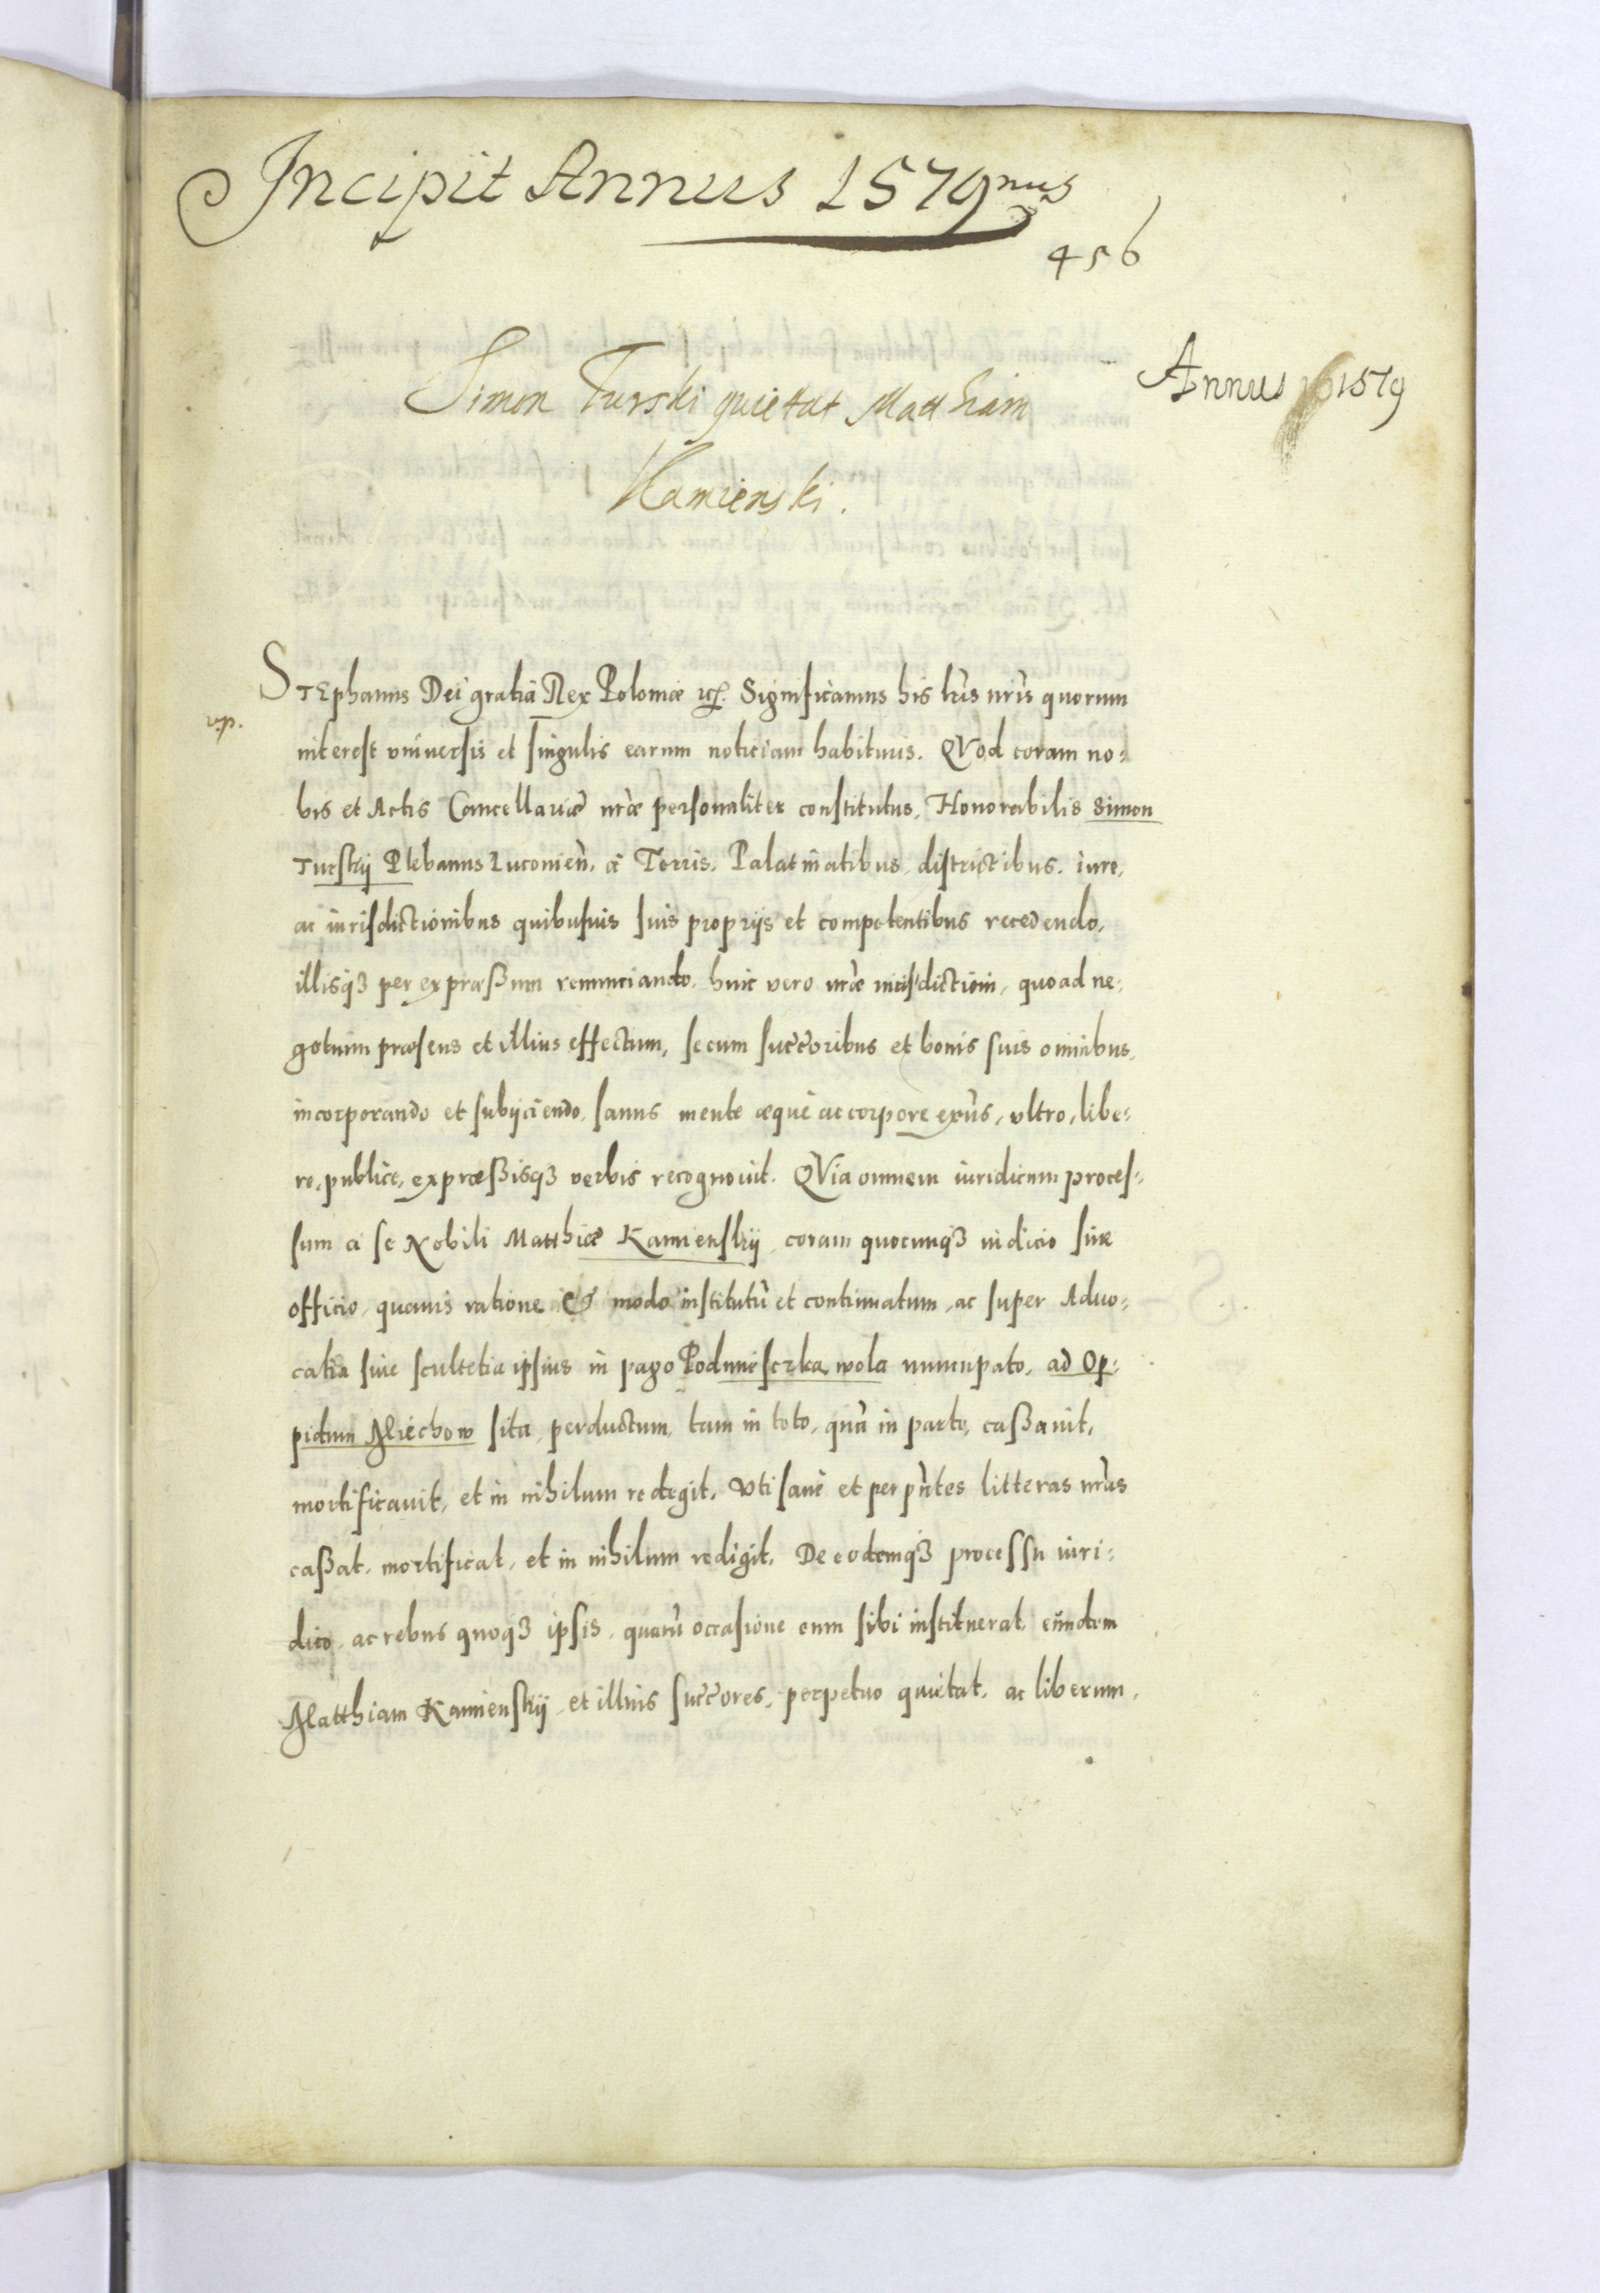 Incipit Annus 1579nus
456
Annus 1579
Simon Turski quietat Matthiam
Kamienski.
STEphanus Dei gratia Rex Poloniæ etc. Significamus his lr̃is nr̃is quorum
v.p.
interest vniuersis et singulis earum noticiam habituris. QVod coram no=
bis et Actis Cancellariæ nr̃æ personaliter constitutus, Honorabilis Simon
Turskij Plebanus Luconien̄. à Terris, Palatinatibus, districtibus, iure,
ac iurisdictionibus quibusuis suis proprijs et competentibus recedendo,
illisq3 per expræßum renunciando, huic vero nr̃æ iurisdictioni, quoad ne=
gotium præsens et illius effectum, secum succ̃oribus et bonis suis omnibus,
incorporando et subijciendo, sanus mente æquè ac corpore exn̄s, vltro, libe=
re, publice, expræßisq3 verbis recognouit. QVia omnem iuridicum proces=
sum à se Nobili Matthiæ Kamienskij, coram quocunq3 iudicio siue
officio, quauis ratione & modo institutū et continuatum, ac super Aduo=
catia siue scultetia ipsius in pago Podmieserka wola nuncupato, ad Op=
pidum Miechow sita, perductum, tam in toto, quā in parte, caßauit,
mortificauit, et in nihilum redegit, Vti sanè et per pn̄tes litteras nr̃as
caßat, mortificat, et in nihilum redigit, De eodemq3 processu iuri=
dico, ac rebus quoq3 ipsis, quarū occasione eum sibi instituerat, eundem
Matthiam Kamienskij, et illius succ̃ores, perpetuo quietat, ac liberum,